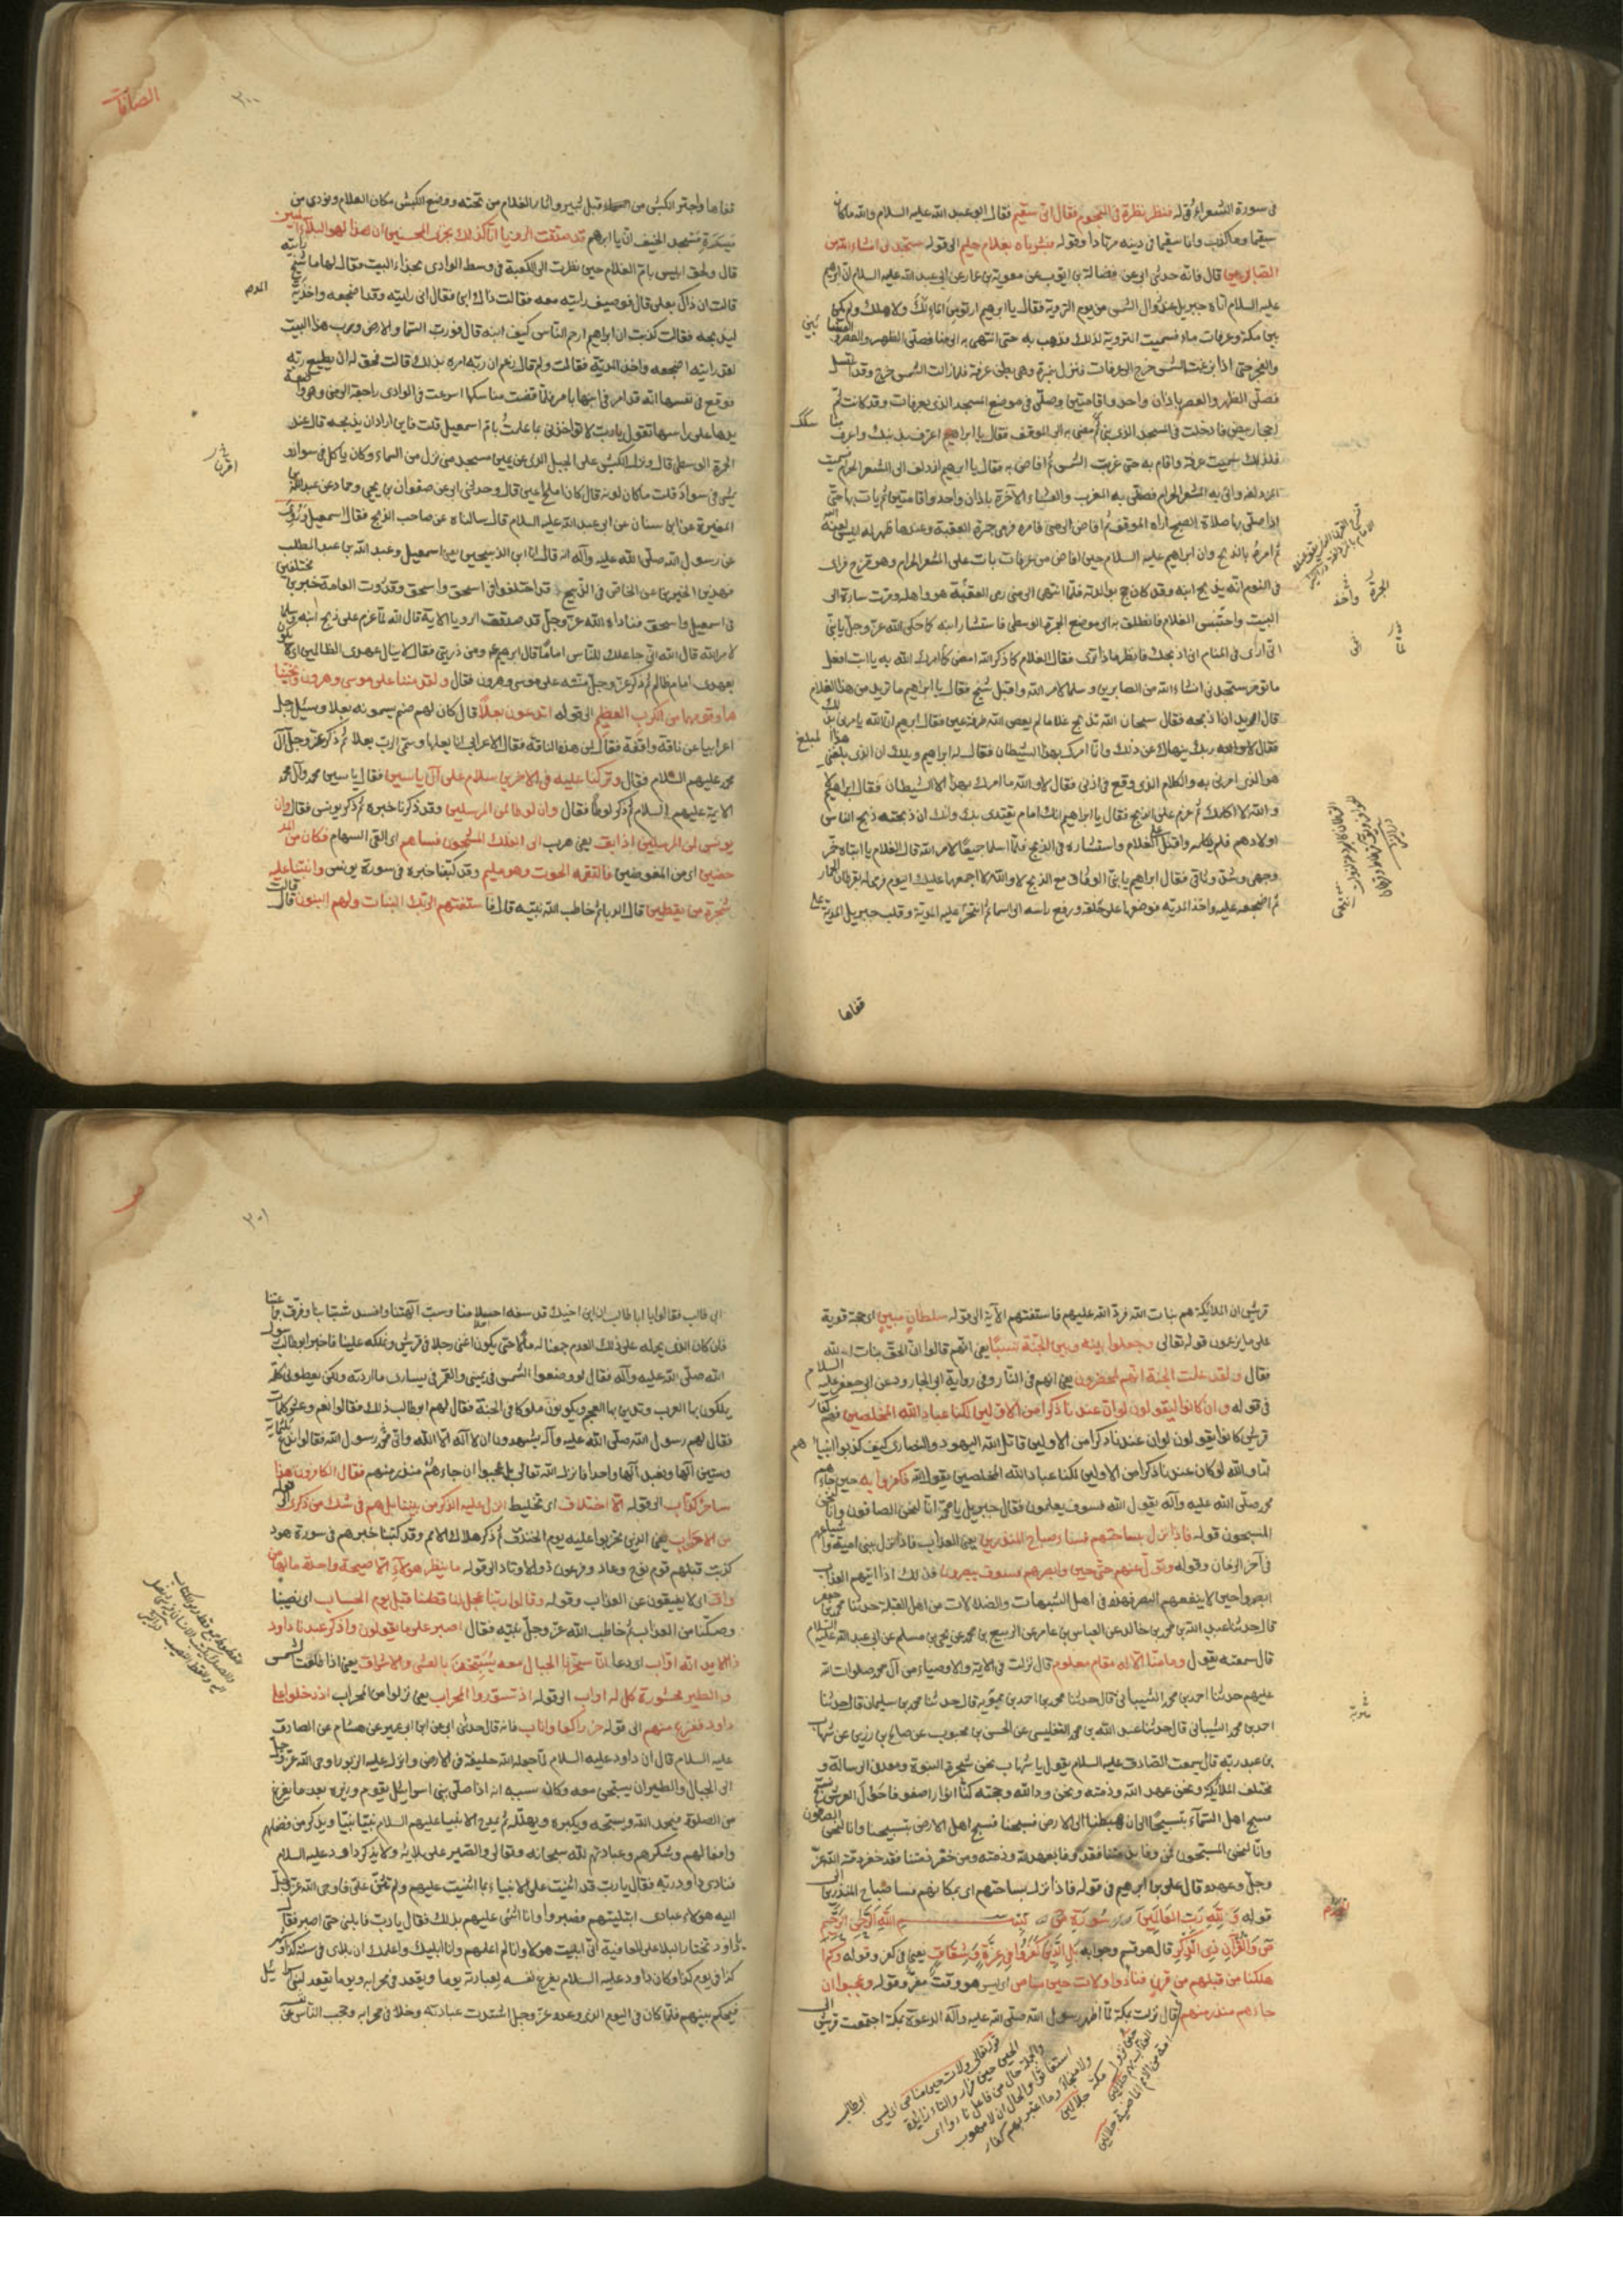 فى سورة الشعراء قوله فنظر نظرة فى النجوم فقال انى سقيم فقال ابو عبد الله عليه السلام والله ما كان
سقيما وما كذب وانما سقيما فى دينه مرتادا وقوله فبشرناه بغلام حليم الى قوله ستجدنى انشاء الله من
الصابرين قال فانه حدثنى ابى عن فضالة بن ايوب عن معوية بن عمار عن ابى عبد الله عليه السلام ان ابرهيم
عليه السلام اتاه جبريل عند زوال الشمس من يوم التروية فقال يا ابرهيم ارتو من الماء لك ولاهلك ولم يكن
بين مكة وعرفات ماء فسميت التروية لذلك فذهب به حتى انتهى به الى منا فصلى الظهر والعصر
والفجر حتى اذا بزغت الشمس خرج الى عرفات فنزل بنمرة وهى بطن عرفة فلما زالت الشمس خرج وقد اغتسل
فصلى الظهر والعصر باذان واحد واقامتين وصلى فى موضع المسجد الذى بعرفات وقد كانت ثم
احجار بيض فادخلت فى المسجد الذى بنى ثم مضى به الى الموقف فقال يا ابراهيم اعترف بذنبك واعرف
فلذلك سميت عرفة واقام به حتى غربت الشمس ثم افاض به فقال يا ابرهيم ازدلف الى المشعر الحرام فسميت
المزدلفة واتى به المشعر الحرام فصلى به المغرب والعشاء الآخرة باذان واحد واقامتين ثم بات بها حتى
اذا صلى بها صلاة الصبح اراه الموقف ثم افاض الى منى فامره فرمى جمرة العقبة وعندها ظهر له ابليس لعنه الله
ثم امره بالذبح وان ابراهيم عليه السلام حين افاض من عرفات بات على المشعر الحرام وهو قزح فراى
فى النوم انه يذبح ابنه وقد كان حج بوالدته فلما انتهى الى منى رمى العقبة هو واهله ومرت سارة الى
البيت واحتبس الغلام فانطلق به الى موضع الجمرة الوسطى فاستشار ابنه كما حكى الله عز وجل يا بنى
انى ارى فى المنام انى اذبحك فانظر ماذا ترى فقال الغلام كما ذكر الله امض كما امرك الله به يا ابت افعل
ما تؤمر ستجدنى انشاء الله من الصابرين وسلما لامر الله واقبل شيخ فقال يا ابراهيم ما تريد من هذا الغلام
قال اريد ان اذبحه فقال سبحان الله تذبح غلاما لم يعص الله طرفة عين فقال ابرهيم ان الله يامرنى بذلك
فقال ربك ينهاك عن ذلك وانما امرك بهذا الشيطان فقال له ابراهيم ويلك ان الذى بلغنى هذا المبلغ
هو الذى امرنى به والكلام الذى وقع فى اذنى فقال لا والله ما امرك بهذا الا الشيطان فقال ابراهيم لا
والله لا اكلمك ثم عزم على الذبح فقال يا ابراهيم انك امام يقتدى بك وانك ان ذبحته ذبح الناس
اولادهم فلم يكلمه واقبل على الغلام واستشاره فى الذبح فلما اسلما جميعا لامر الله قال الغلام يا ابتاه خمر
وجهى وشد وثاقى فقال ابراهيم يا بنى الوثاق مع الذبح لا والله لا اجمعهما عليك اليوم فرمى له بقرطان الحمار
ثم اضجعه عليه واخذ المدية فوضعها على حلقه ورفع راسه الى السماء ثم انتحى عليه المدية وقلب جبريل المدية على
قفاها
الصافات
٣٠٠
قفاها واجتر الكبش من قبل ثبير واثار الغلام من تحته ووضع الكبش مكان الغلام ونودى من
ميسرة مسجد الخيف ان يا ابرهيم قد صدقت الرؤيا انا كذلك نجزى المحسنين ان هذا لهو البلاء المبين
قال ولحق ابليس بام الغلام حين نظرت الى الكعبة فى وسط الوادى بحذاء البيت فقال لها ما شيخ رايته
قالت ان ذاك بعلى قال فوصيف رايته معه فقالت ذاك ابنى فقال انى رايته وقد اضجعه واخذ المدية
ليذبحه فقالت كذبت ان ابراهيم ارحم الناس كيف يذبح ابنه قال فورب السماء والارض ورب هذا البيت
لقد رايته اضجعه واخذ المدية فقالت ولم قال زعم ان ربه امره بذلك قالت فحق له ان يطيع ربه
فوقع فى نفسها انه قد امر فى ابنها بامر فلما قضت مناسكها اسرعت فى الوادى راجعة الى منى وهى واضعة
يدها على راسها تقول يا رب لا تؤاخذنى بما عملت بام اسمعيل قلت فاين اراد ان يذبحه قال عند
الجمرة الوسطى قال ونزل الكبش على الجبل الذى عن يمين مسجد منى نزل من السماء وكان ياكل فى سواد و
يمشى فى سواد قلت ما كان لونه قال كان املح اعين قال وحدثنى ابى عن صفوان بن يحيى وحماد عن عبد الله بن
المغيرة عن ابن سنان عن ابى عبد الله عليه السلام قال سالناه عن صاحب الذبح فقال اسمعيل وروى
عن رسول الله صلى الله عليه وآله انه قال انا ابن الذبيحين يعنى اسمعيل وعبد الله بن عبد المطلب
فهذين الخبرين عن الخاص فى الذبيح قد اختلفوا فى اسحق واسحق وقد روت العامة خبرين مختلفين
فى اسمعيل واسحق فناداه الله عز وجل قد صدقت الرؤيا الاية قال الله لما عزم على ذبح ابنه وسلما
لامر الله قال الله انى جاعلك للناس اماما قال ابرهيم ومن ذريتى فقال لا ينال عهدى الظالمين اى لا يكون
بعهدى امام ظالم ثم ذكر عز وجل منته على موسى وهرون فقال ولقد مننا على موسى وهرون ونجينا
هما وقومهما من الكرب العظيم الى قوله اتدعون بعلا قال كان لهم صنم يسمونه بعلا وسئل رجل
اعرابيا عن ناقة واقفة فقال لمن هذه الناقة فقال الاعرابى انا بعلها وسمى الرب بعلا ثم ذكر عز وجل آل
محمد عليهم السلام فقال وتركنا عليه فى الاخرين سلام على آل ياسين فقال ياسين محمد وآل محمد
الايمة عليهم السلام ثم ذكر لوطا فقال وان لوطا لمن المرسلين وقد ذكرنا خبره ثم ذكر يونس فقال وان
يونس لمن المرسلين اذ ابق يعنى هرب الى الفلك المشحون فساهم اى القى السهام فكان من المد
حضين اى من المغوضين فالتقمه الحوت وهو مليم وقد كتبنا خبره فى سورة يونس وانبتنا عليه
شجرة من يقطين قال الدباء ثم خاطب الله نبيه فقال فاستفتهم الربك البنات ولهم البنون قال قالت
قريش ان الملائكة هم بنات الله فرد الله عليهم فاستفتهم الآية الى قوله سلطان مبين اى حجة قوية
على ما يزعمون قوله تعالى وجعلوا بينه وبين الجنة نسبا يعنى انهم قالوا ان الجن بنات الله
فقال ولقد علمت الجنة انهم لمحضرون يعنى انهم فى النار وفى رواية ابى الجارود عن ابى جعفر عليه السلام
فى قوله وان كانوا ليقولون لو ان عندنا ذكرا من الاولين لكنا عباد الله المخلصين فهم كفار
قريش كانوا يقولون لو ان عندنا ذكرا من الاولين قاتل الله اليهود والنصارى كيف كذبوا انبياءهم
اما والله لو كان عندنا ذكرا من الاولين لكنا عباد الله المخلصين يقول الله فكفروا به حين جاءهم
محمد صلى الله عليه وآله يقول الله فسوف يعلمون فقال جبريل يا محمد انا لنحن الصافون وانا لنحن
المسبحون قوله فاذا نزل بساحتهم فساء صباح المنذرين يعنى العذاب فاذا نزل ببنى امية واشياعهم
فى آخر الزمان وقوله وتول عنهم حتى حين وابصرهم فسوف يبصرون فذلك اذا اتيهم العذاب
ابصروا حين لا ينفعهم البصر فهذه فى اهل الشبهات والضلالات من اهل القبلة حدثنا محمد بن جعفر
قال حدثنا عبد الله بن محمد بن خالد عن العباس بن عامر عن الربيع بن محمد عن يحيى بن مسلم عن ابى عبد الله عليه السلام
قال سمعته يقول وما منا الا له مقام معلوم قال نزلت فى الايمة والاوصياء من آل محمد صلوات الله
عليهم حدثنا احمد بن محمد الشيبانى قال حدثنا محمد بن احمد بن قال حدثنا محمد بن سليمان قال حدثنا
احمد بن محمد الشيبانى قال حدثنا عبد الله بن محمد التفليسى عن الحسن بن محبوب عن صالح بن رزين عن شهاب
بن عبد ربه قال سمعت الصادق عليه السلام يقول يا شهاب نحن شجرة النبوة ومعدن الرسالة و
مختلف الملائكة ونحن عهد الله وذمته ونحن ود الله وحجته كنا انوارا صفوفا حول العرش نسبح
فيسبح اهل السماء بتسبيحنا الى ان هبطنا الى الارض فسبحنا فسبح اهل الارض بتسبيحنا وانا لنحن الصافون
وانا لنحن المسبحون فمن وفا بذمتنا فقد وفا بعهد الله وذمته ومن خفر ذمتنا فقد خفر ذمة الله عز
وجل وعهده قال على بن ابرهيم فى قوله فاذا نزل بساحتهم اى بمكانهم فساء صباح المنذرين الى
قوله لله رب العالمين سورة ص بسم الله الرحمن الرحيم
ص والقرآن ذى الذكر قال هو قسم وجوابه بل الذين كفروا فى عزة وشقاق يعنى فى كفر وقوله وكم ا
هلكنا من قبلهم من قرن فنادوا ولات حين مناص اى ليس هو وقت مفر وقوله وعجبوا ان
جاءهم منذر منهم قال نزلت بمكة لما اظهر رسول الله صلى الله عليه وآله الدعوة بمكة اجتمعت قريش الى
قوله تعالى ولات حين مناص اى ليس
الحين حين فرار والتاء زائدة
والجملة حال من فاعل نادوا اى
ابو طالب
ص
٣٠١
ابى طالب فقالوا يا ابا طالب ان ابن اخيك قد سفه احلامنا وسب آلهتنا وافسد شباننا وفرق جماعتنا
فان كان الذى يحمله على ذلك العدم جمعنا له مالا حتى يكون اغنى رجلا فى قريش ونملكه علينا فاخبر ابو طالب رسول
الله صلى الله عليه وآله فقال لو وضعوا الشمس فى يمينى والقمر فى يسارى ما اردته ولكن يعطونى كلمة
يملكون بها العرب وتدين بها العجم ويكونون ملوكا فى الجنة فقال لهم ابو طالب ذلك فقالوا نعم وعشر كلمات
فقال لهم رسول الله صلى الله عليه وآله تشهدون ان لا اله الا الله وانى محمد رسول الله فقالوا ندع ثلثماية
وستين آلها ونعبد آلها واحدا فانزل الله تعالى بل عجبوا ان جاءهم منذر منهم فقال الكافرون هذا
ساحر كذاب الى قوله الا اختلاق اى تخليط انزل عليه الذكر من بيننا بل هم فى شك من ذكرى الى قوله
من الاحزاب يعنى الذين تحزبوا عليه يوم الخندق ثم ذكر هلاك الامم وقد كتبنا خبرهم فى سورة هود
كذبت قبلهم قوم نوح وعاد وفرعون ذو الاوتاد الى قوله ما ينظر هؤلاء الا صيحة واحدة ما لها من
فواق اى لا يفيقون عن العذاب وقوله وقالوا ربنا عجل لنا قطنا قبل يوم الحساب اى نصيبنا
وصكنا من العذاب ثم خاطب الله عز وجل نبيه فقال اصبر على ما يقولون واذكر عبدنا داود
ذا الايد انه اواب اى دعاء انا سخرنا الجبال معه يسبحن بالعشى والاشراق يعنى اذا طلعت الشمس
والطير محشورة كل له اواب الى قوله اذ تسوروا المحراب يعنى نزلوا من المحراب اذ دخلوا على
داود ففزع منهم الى قوله خر راكعا واناب فانه قال حدثنى ابى عن ابن ابى عمير عن هشام عن الصادق
عليه السلام قال ان داود عليه السلام لما جعله الله خليفة فى الارض وانزل عليه الزبور اوحى الله عز وجل
الى الجبال والطير ان يسبحن معه وكان سببه انه اذا صلى بنى اسرائيل يقوم وزيره بعد ما يفرغ
من الصلوة فيحمد الله ويسبحه ويكبره ويهلله ثم يمدح الانبياء عليهم السلام نبيا نبيا ويذكر من فضلهم
وافعالهم وشكرهم وعبادتهم لله سبحانه وتعالى والصبر على بلائه ولا يذكر داود عليه السلام
فنادى داود ربه فقال يا رب قد اثنيت على الانبياء بما اثنيت عليهم ولم تثن على فاوحى الله عز وجل
اليه هؤلاء عبادى ابتليتهم فصبروا وانا اثنى عليهم بذلك فقال يا رب فابلنى حتى اصبر فقال
يا داود تختار البلاء على العافية انى ابليت هؤلاء وانا لم اعلمهم وانا ابليك واعلمك ان بلائى فى سنة كذا وشهر
كذا فى يوم كذا وكان داود عليه السلام يفرغ نفسه لعبادته يوما ويقعد فى محرابه ويوما يقعد لبنى اسرائيل
فيحكم بينهم فلما كان فى اليوم الذى وعده عز وجل اشتدت عبادته وخلا فى محرابه وحجب الناس عن نفسه